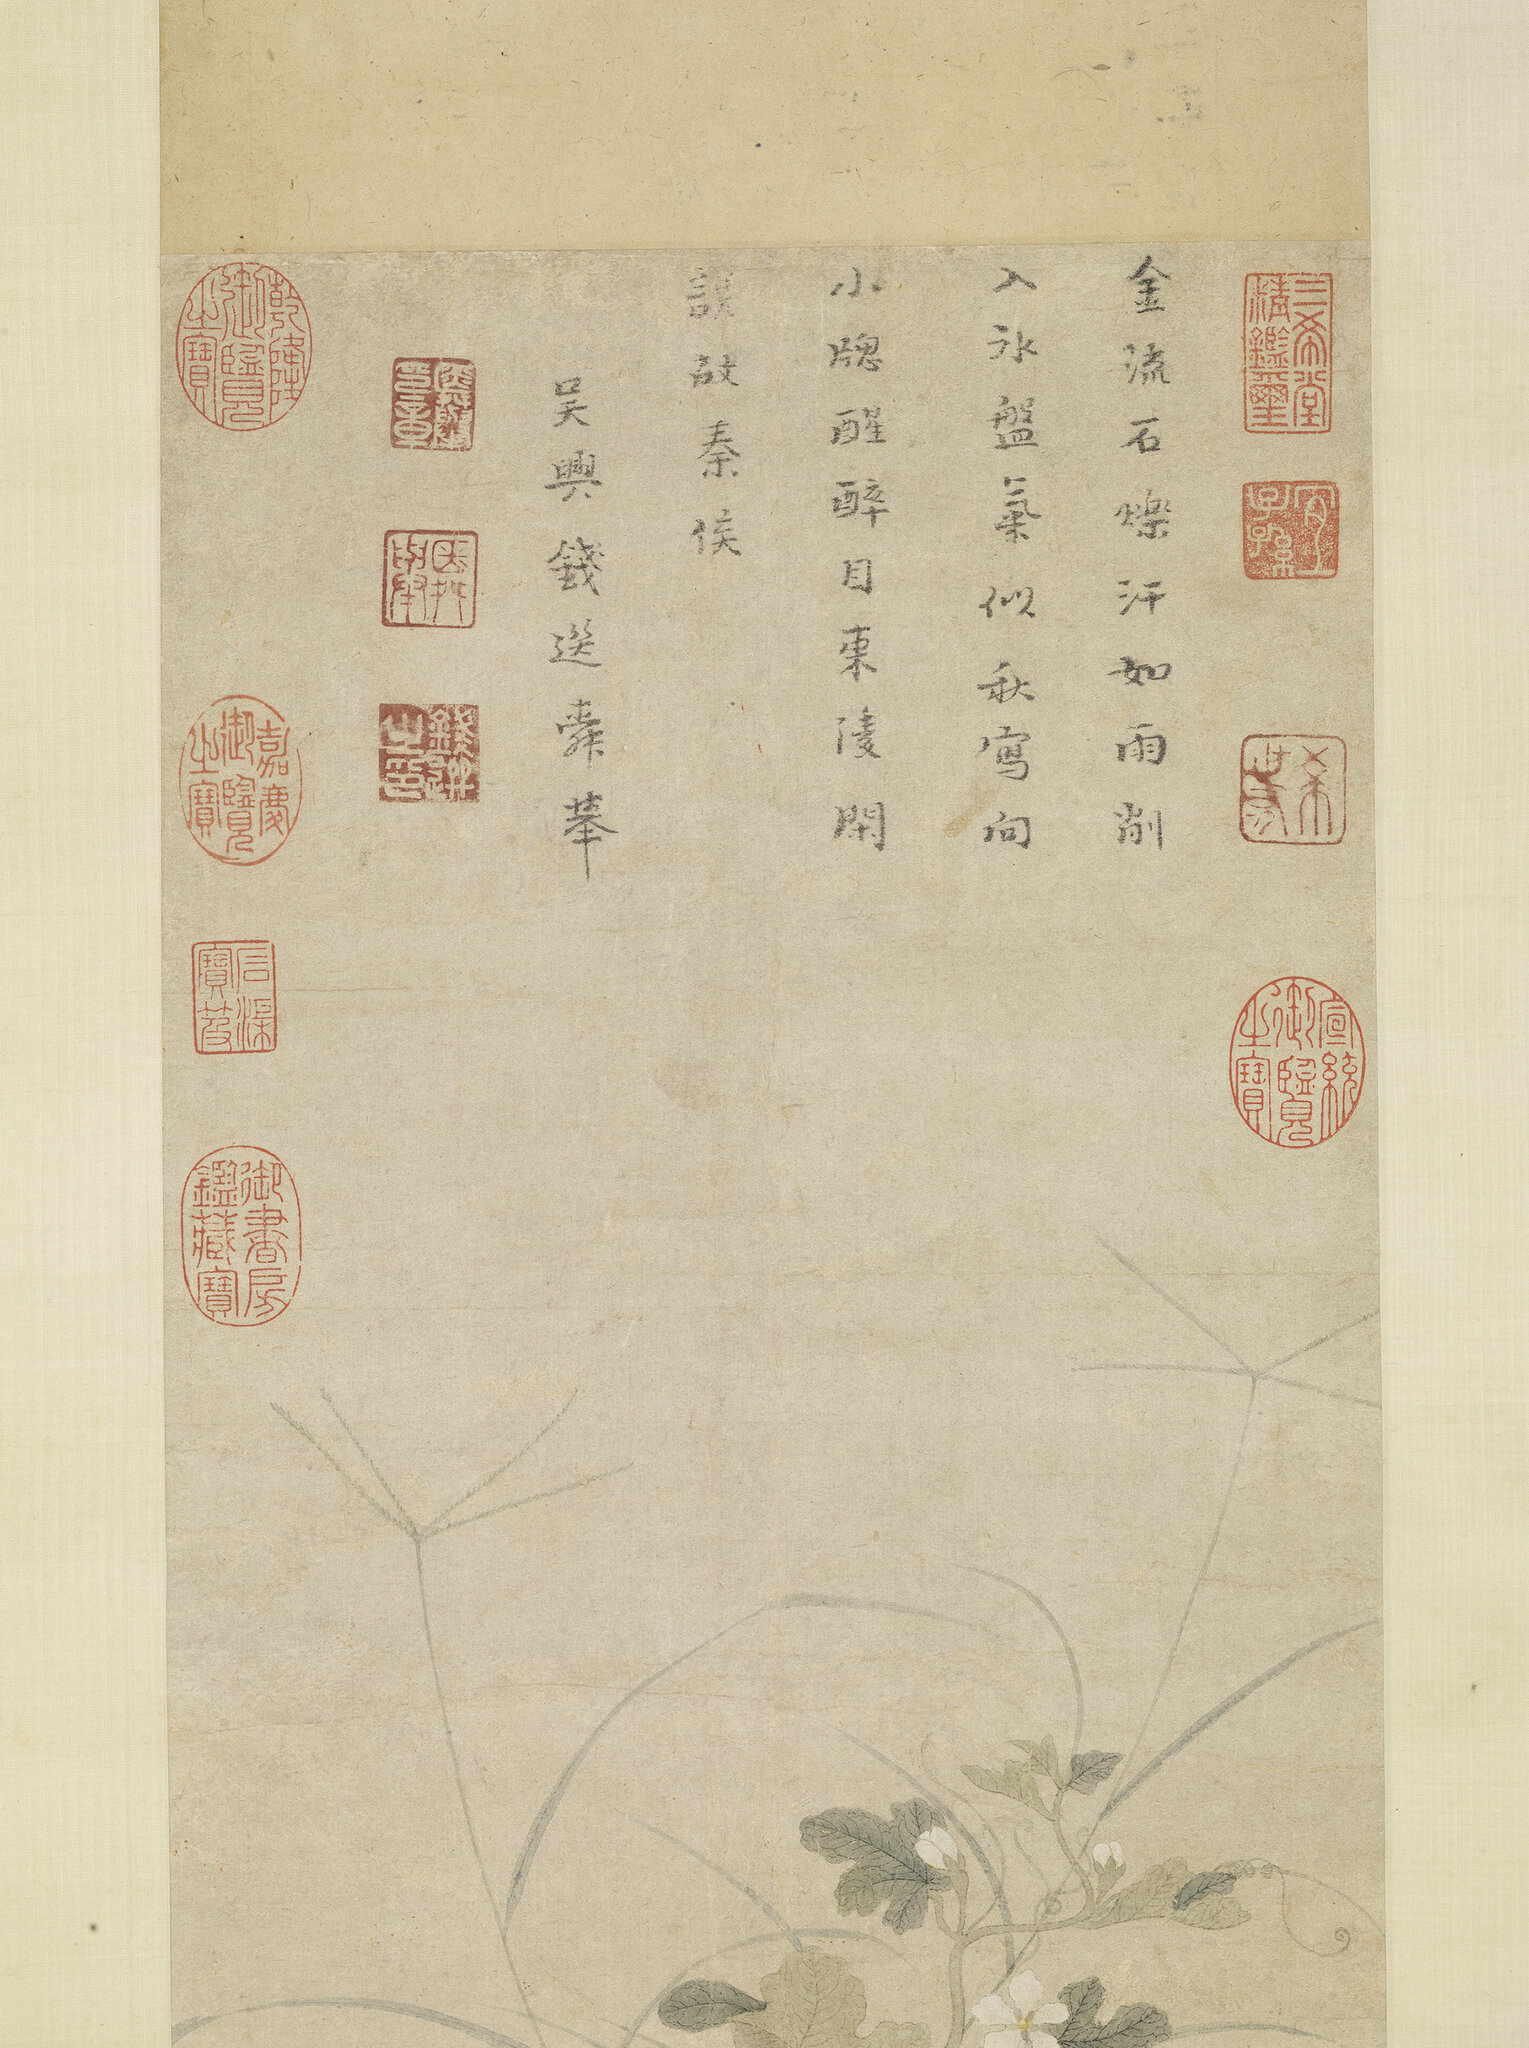 金流石爍汗如雨削
入氷盤氣似秋寫向
小牕醒醉目東陵閑
說故秦侯
吳興錢選舜舉
三希堂精鑑璽
宜子孫
宣統御覽之寶
乾隆御覽之寶
嘉慶御覽之寶
石渠寶笈
御書房鑑藏寶
舜舉
錢選之印